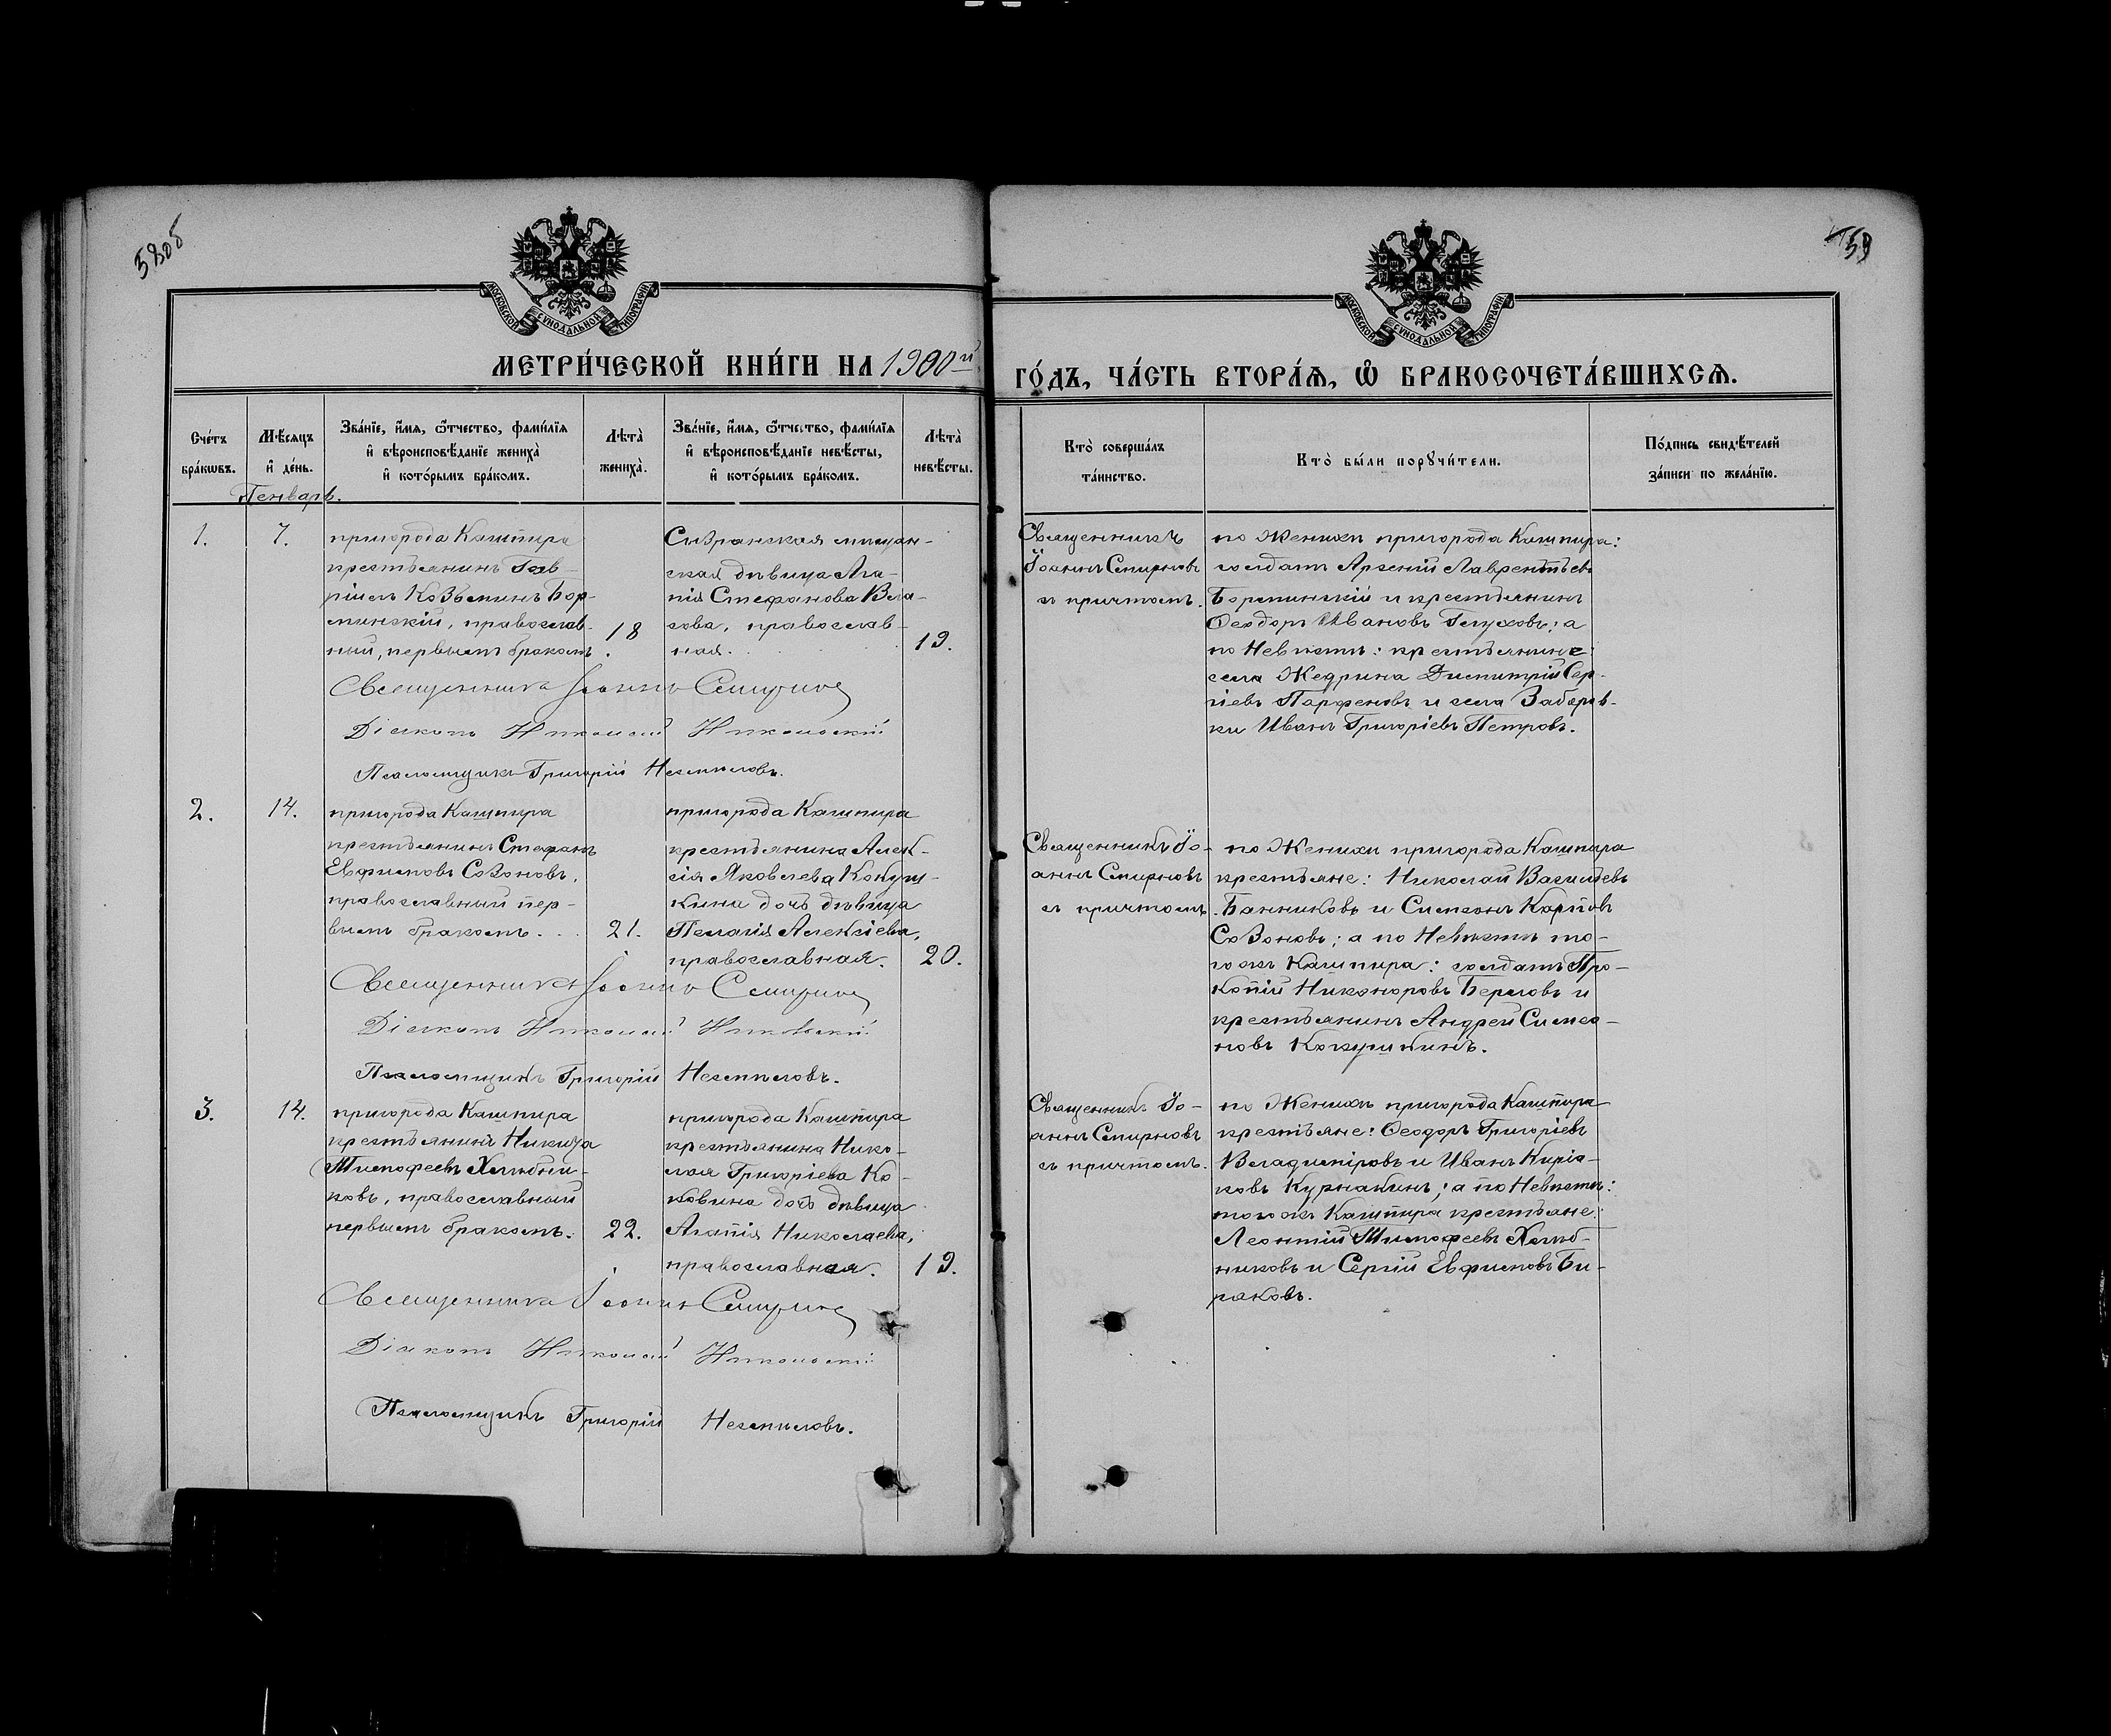 58об
59
МОСКОВСКОЙ СѴНОДАЛЬНОЙ ТИПОГРАФІИ
МОСКОВСКОЙ СѴНОДАЛЬНОЙ ТИПОГРАФІИ
МЕТРИ́ЧЕСКОЙ КНИ́ГИ НА 1900й
ГО́ДЪ, ЧА́СТЬ ВТОРА́Я, Ѽ БРАКОСОЧЕТА́ВШИХСѦ.
Сче́тъ
бра́кωвъ.
Мѣ́сяцъ
и҆ де́нь.
Зва́нїе, и҆́мя, ѻ҆́тчество, фами́лїя
и҆ вѣроисповѣ́данїе жениха̀
и҆ кото́рымъ бра́комъ.
Лѣта̀
жениха̀.
Зва́нїе, и҆́мя, ѻ҆́тчество, фами́лїя
и҆ вѣроисповѣ́данїе невѣ́сты,
и҆ кото́рымъ бра́комъ.
Лѣта̀
невѣ́сты.
Кто̀ соверша́лъ
та́инство.
Кто̀ бы́ли порꙋчи́тели.
По́дпись свидѣ́телей
за́писи по жела́нїю.
Генварь.
1.
7.
пригорода Кашпира
крестьянинъ Гав-
ріилъ Козьминъ Бор-
минскій, православ-
ный, первымъ бракомъ.
18
Сызранская мѣщан-
ская дѣвица Ага-
пія Стефанова Вла-
сова, православ-
ная.
19.
Священникъ
Іоаннъ Смирновъ
съ причтомъ.
по Женихѣ пригорода Кашпира:
солдатъ Арсеній Лаврентьевъ
Борминскій и крестьянинъ
Ѳеодоръ Ивановъ Глуховъ; а
по Невѣстѣ: крестьянине:
села Жедрина Димитрій Сер-
гіевъ Парфеновъ и села Заборов-
ки Иванъ Григоріевъ Петровъ.
Священникъ Іоаннъ Смирновъ
Діаконъ Николай Никольскій
Псаломщикъ Григорій Несмѣловъ.
2.
14.
пригорода Кашпира
крестьянинъ Стефанъ
Евфимовъ Созоновъ,
православный пер-
вымъ бракомъ.
21.
пригорода Кашпира
крестьянина Алек-
сія Яковлева Кокуш-
кина дочь дѣвица
Пелагія Алексіева,
православная.
20.
Священникъ Іо-
аннъ Смирновъ
съ причтомъ.
по Женихѣ пригорода Кашпира
крестьяне: Николай Васильевъ
Банниковъ и Симеонъ Карповъ
Созоновъ; а по Невѣстѣ то-
гожъ Кашпира: солдатъ Про-
копій Никоноровъ Берловъ и
крестьянинъ Андрей Симео-
новъ Кокушкинъ.
Священникъ Іоаннъ Смирновъ
Діаконъ Николай Никольскій
Псаломщикъ Григорій Несмѣловъ.
3.
14.
пригорода Кашпира
крестьянинъ Никита
Тимофеевъ Хлѣбни-
ковъ, православный
первымъ бракомъ.
22.
пригорода Кашпира
крестьянина Нико-
лая Григоріева Ко-
ковина дочь дѣвица
Агапія Николаева,
православная.
19.
Священникъ Іо-
аннъ Смирновъ
съ причтомъ.
по Женихѣ пригорода Кашпира
крестьяне: Ѳеодоръ Григоріевъ
Владиміровъ и Иванъ Киріа-
ковъ Курнакинъ; а по Невѣстѣ:
тогожъ Кашпира крестьяне:
Леонтій Тимофеевъ Хлѣб-
никовъ и Сергій Евфимовъ Би-
раковъ.
Священникъ Іоаннъ Смирновъ
Діаконъ Николай Никольскій
Псаломщикъ Григорій Несмѣловъ.